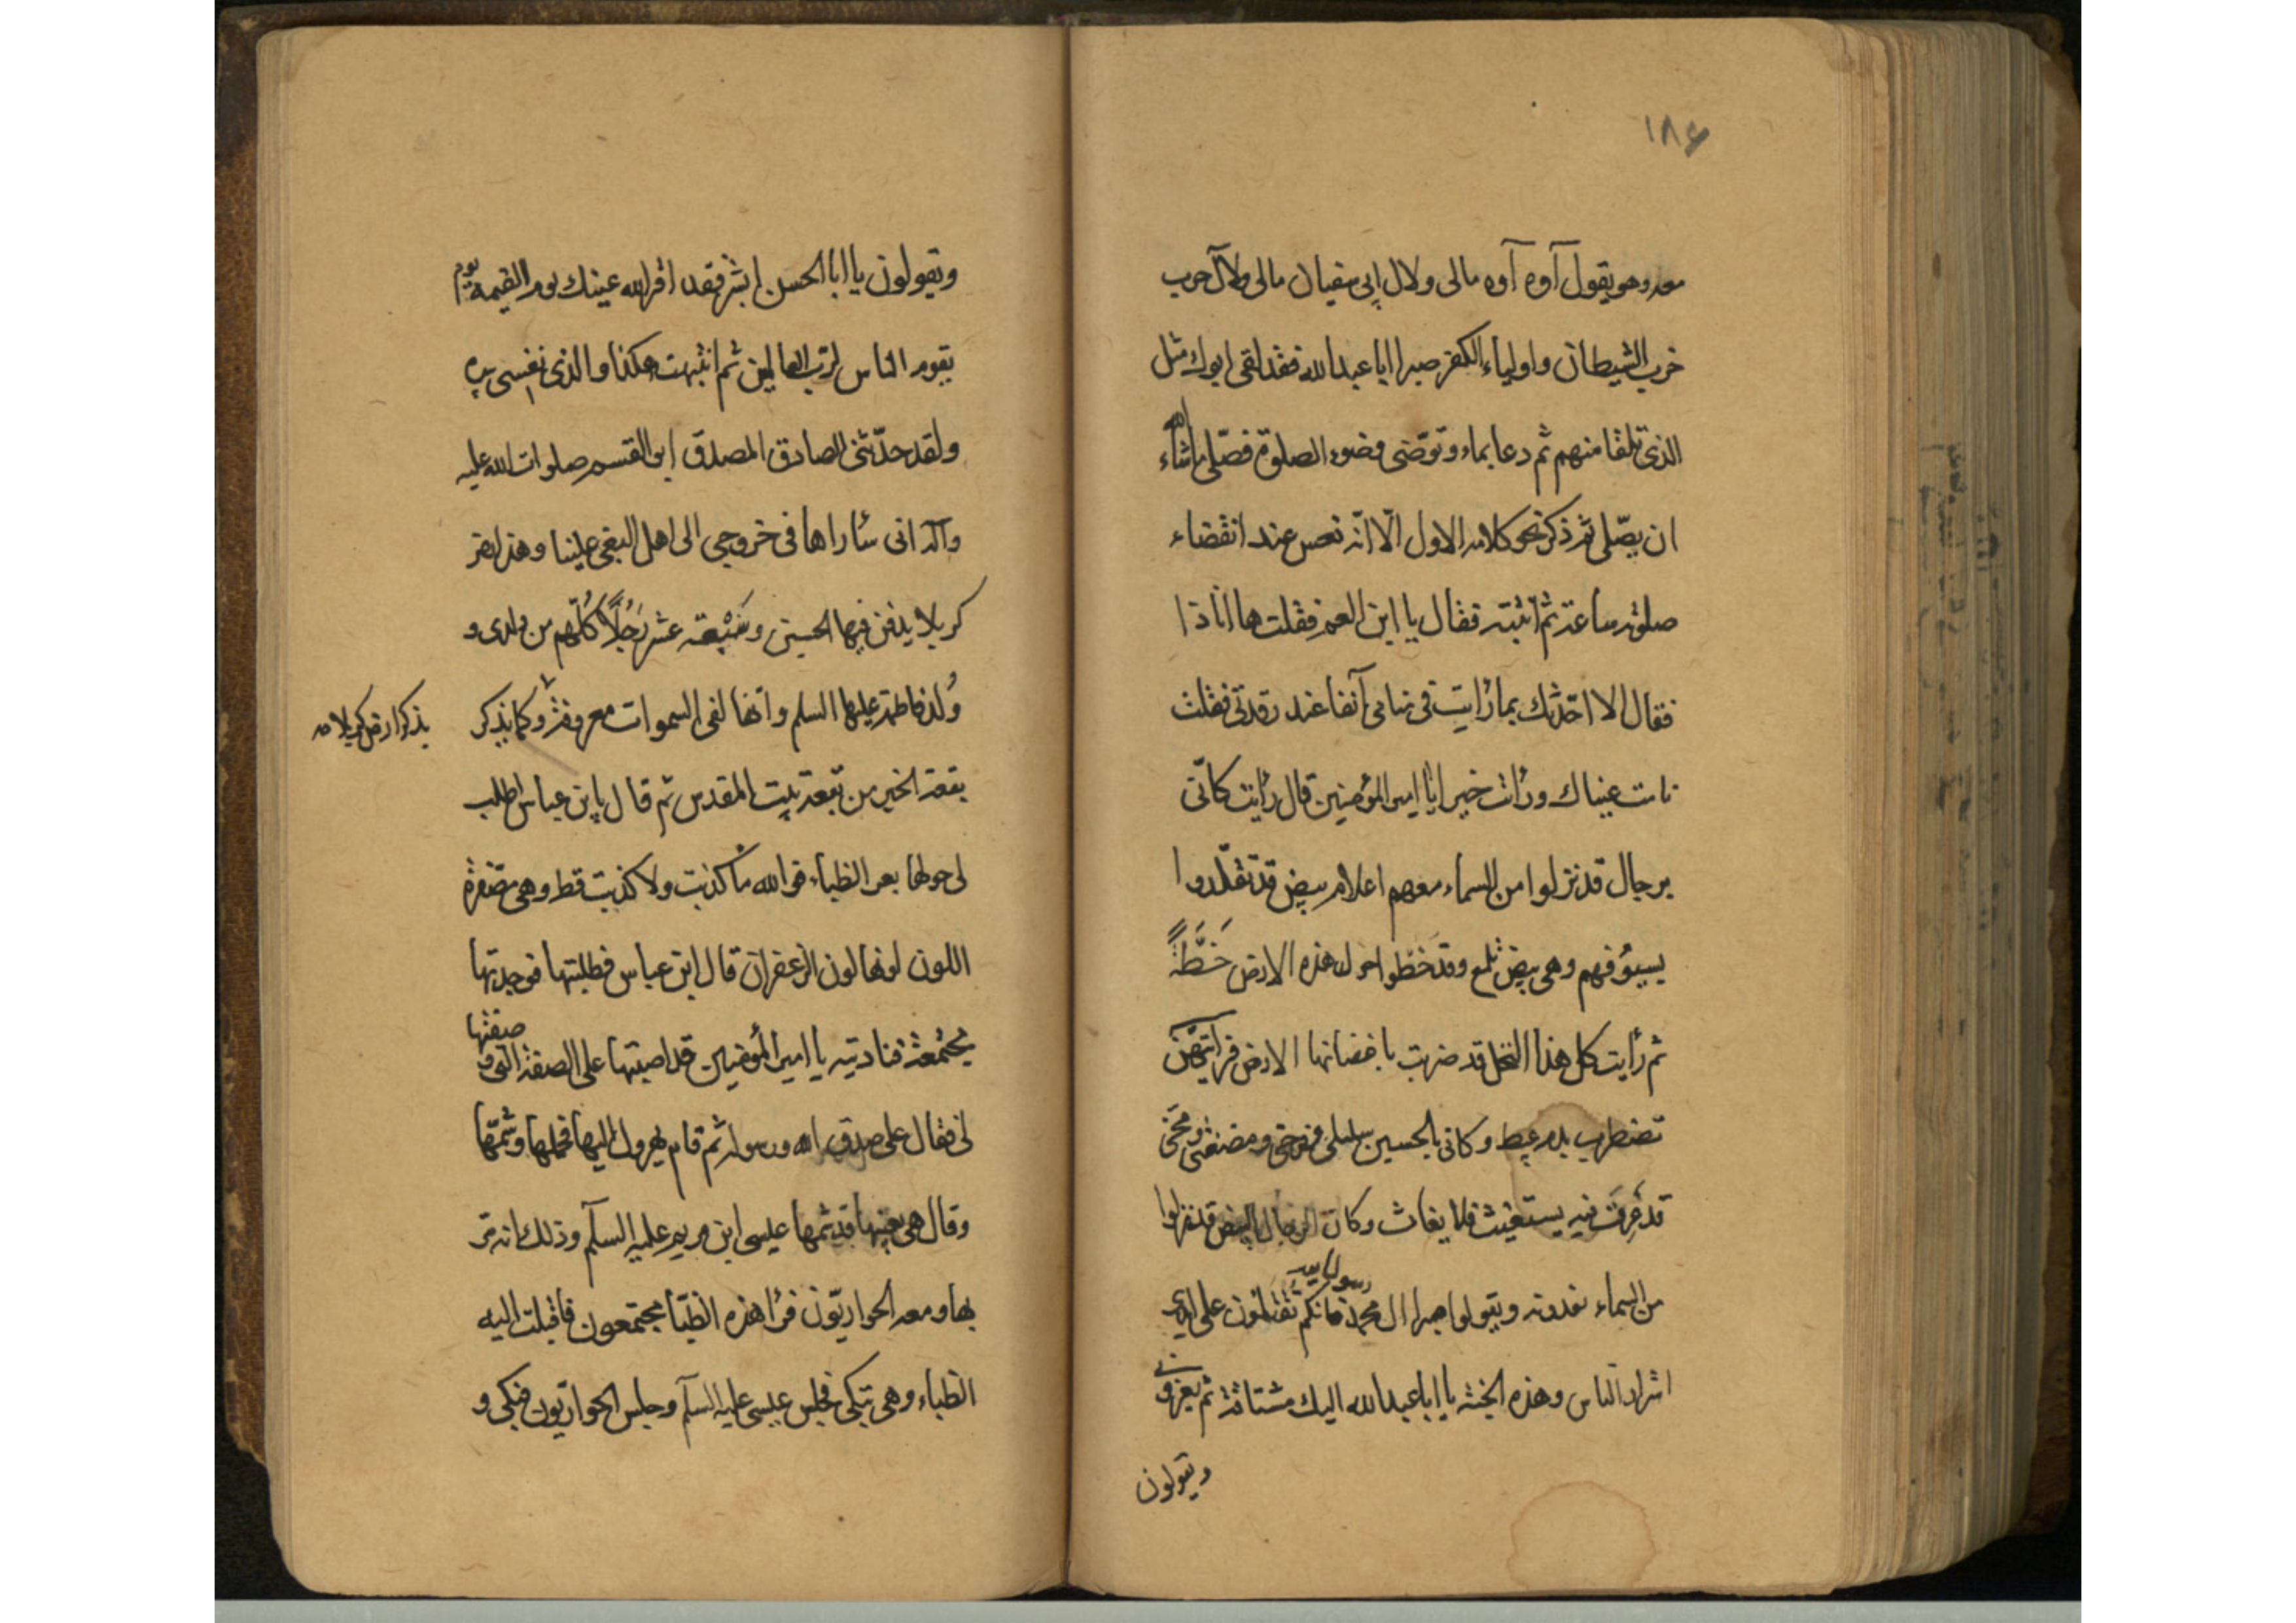 ۱۸۶
معه وهو يقول آوه آوه مالى ولال ابى سفيان مالى ولآل حرب
حزب الشيطان واولياء الكفر صبرا ابا عبد الله فقد لقى ابوك مثل
الذى تلقا منهم ثم دعا بماء وتوضى وضوء الصلوة فصلى ماشاء الله
ان يصلى ثم ذكر نحو كلامه الاول الا انه نعس عند انقضاء
صلوته ساعة ثم انتبه فقال يا ابن العم فقلت ها انا ذا
فقال الا احدثك بما رايت فى منامى آنفا عند رقدتى فقلت
نامت عيناك ورات خيرا يا امير المؤمنين قال رايت كانى
برجال قد نزلوا من السماء معهم اعلام بيض قد تقلدوا
بسيوفهم وهى بيض تلمع وقد خطوا حول هذه الارض خَطَّةً
ثم رأيت كل هذا النخل قد ضربت باغصانها الارض فرايتهن
تضطرب بدم عبيط وكانى بالحسين سليلى وفرخى ومضغتى ومخى
قد غرقت فيه يستغيث فلا يغاث وكان الرجال البيض قد نزلوا
من السماء ينادونه ويقولوا صبرا ال محمد رسول الله فانكم تقتلون على ايدى
اشراد الناس وهذه الجنة يا ابا عبد الله اليك مشتاقة ثم يعزونى
ويقولون
ويقولون يا ابا الحسن ابشر فقد اقر الله عينك يوم القيمة يوم
يقوم الناس لرب العالمين ثم انتبهت هكذا والذى نفسى بيده
ولقد حدثنى الصادق المصدق ابو القسم صلوات الله عليه
وآله انى سأراها فى خروجى الى اهل البغى علينا وهذه ارض
كربلا يدفن فيها الحسين وسَبْعَة عشر رَجُلًا كُلّهم من ولدى و
وُلد فاطمة عليها السلم وانها لفى السموات معروفة وكما يذكر
يذكر ارض كربلا
بقعة الخير من بقعة بيت المقدس ثم قال يابن عباس اطلب
لى حولها بعر الظباء فو الله ما كذبت ولا كذبت قط وهى مصفرة
اللون لونها لون الزعفران قال ابن عباس فطلبتها فوجدتها
مجتمعة فناديته يا امير المؤمنين قد اصبتها على الصفة التى وصفتها
لى فقال على صدق الله ورسوله ثم قام يهرول اليها فحملها وشمها
وقال هى بعينها قد شمها عيسى ابن مريم عليه السلآم وذلك انه مر
بها ومعه الحواريون فرا هذه الظبا مجتمعون فاقبلت اليه
الظباء وهى تبكى فجلس عيسى عليه السلآم وجلس الحواريون فبكى و